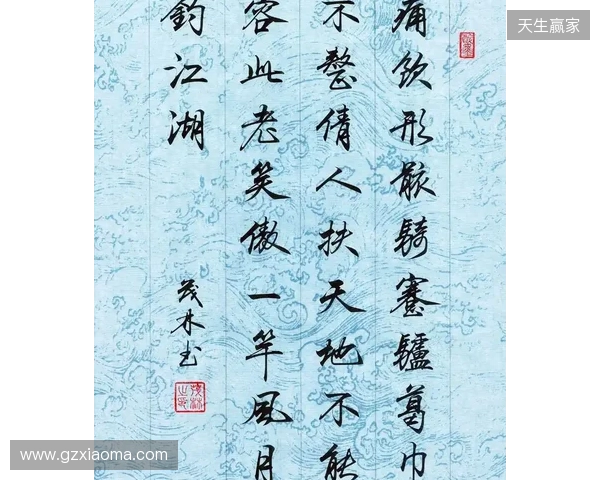 痛飲形骸騎蹇驢葛巾
不整倩人扶天地不能
容此老笑傲一竿風月
釣江湖
茂林书
天生赢家
www.gzxiaoma.com